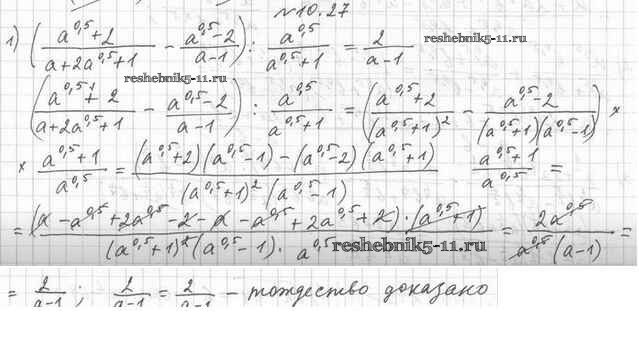 №10.27
1) ((a^0,5+2)/(a+2a^0,5+1) - (a^0,5-2)/(a-1)) : a^0,5/(a^0,5+1) = 2/(a-1) reshebnik5-11.ru
reshebnik5-11.ru
((a^0,5+2)/(a+2a^0,5+1) - (a^0,5-2)/(a-1)) : a^0,5/(a^0,5+1) = ((a^0,5+2)/(a^0,5+1)^2 - (a^0,5-2)/((a^0,5+1)(a^0,5-1))) ×
× (a^0,5+1)/a^0,5 = ((a^0,5+2)(a^0,5-1)-(a^0,5-2)(a^0,5+1))/((a^0,5+1)^2 (a^0,5-1)) (a^0,5+1)/a^0,5 =
= ((a-a^0,5+2a^0,5-2-a-a^0,5+2a^0,5+2)·(a^0,5+1))/((a^0,5+1)^2(a^0,5-1)·a^0,5) = 2a^0,5/(a^0,5(a-1)) =
reshebnik5-11.ru
= 2/(a-1); 2/(a-1) = 2/(a-1) - тождество доказано